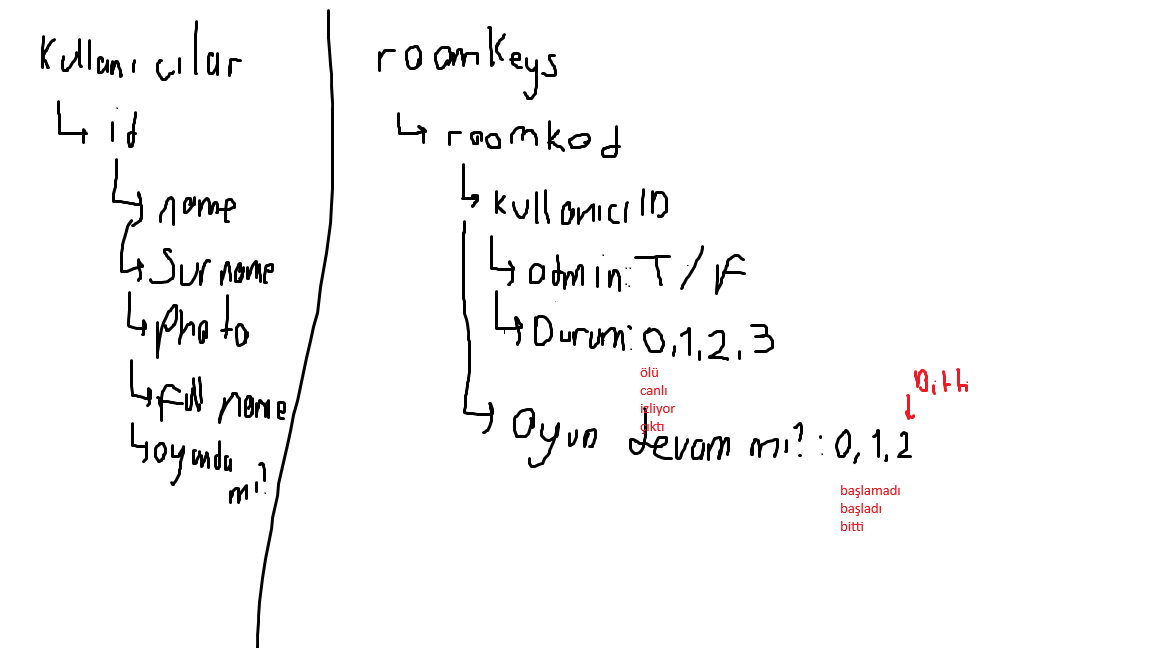 Kullanıcılar
id
name
Surname
Photo
Full name
oyunda
mı?
roomKeys
roomkod
kullanıcı ID
admin: T / F
Durum: 0,1,2,3
ölü
canlı
izliyor
çıktı
Bitti
Oyun devam mı? : 0,1,2
başlamadı
başladı
bitti